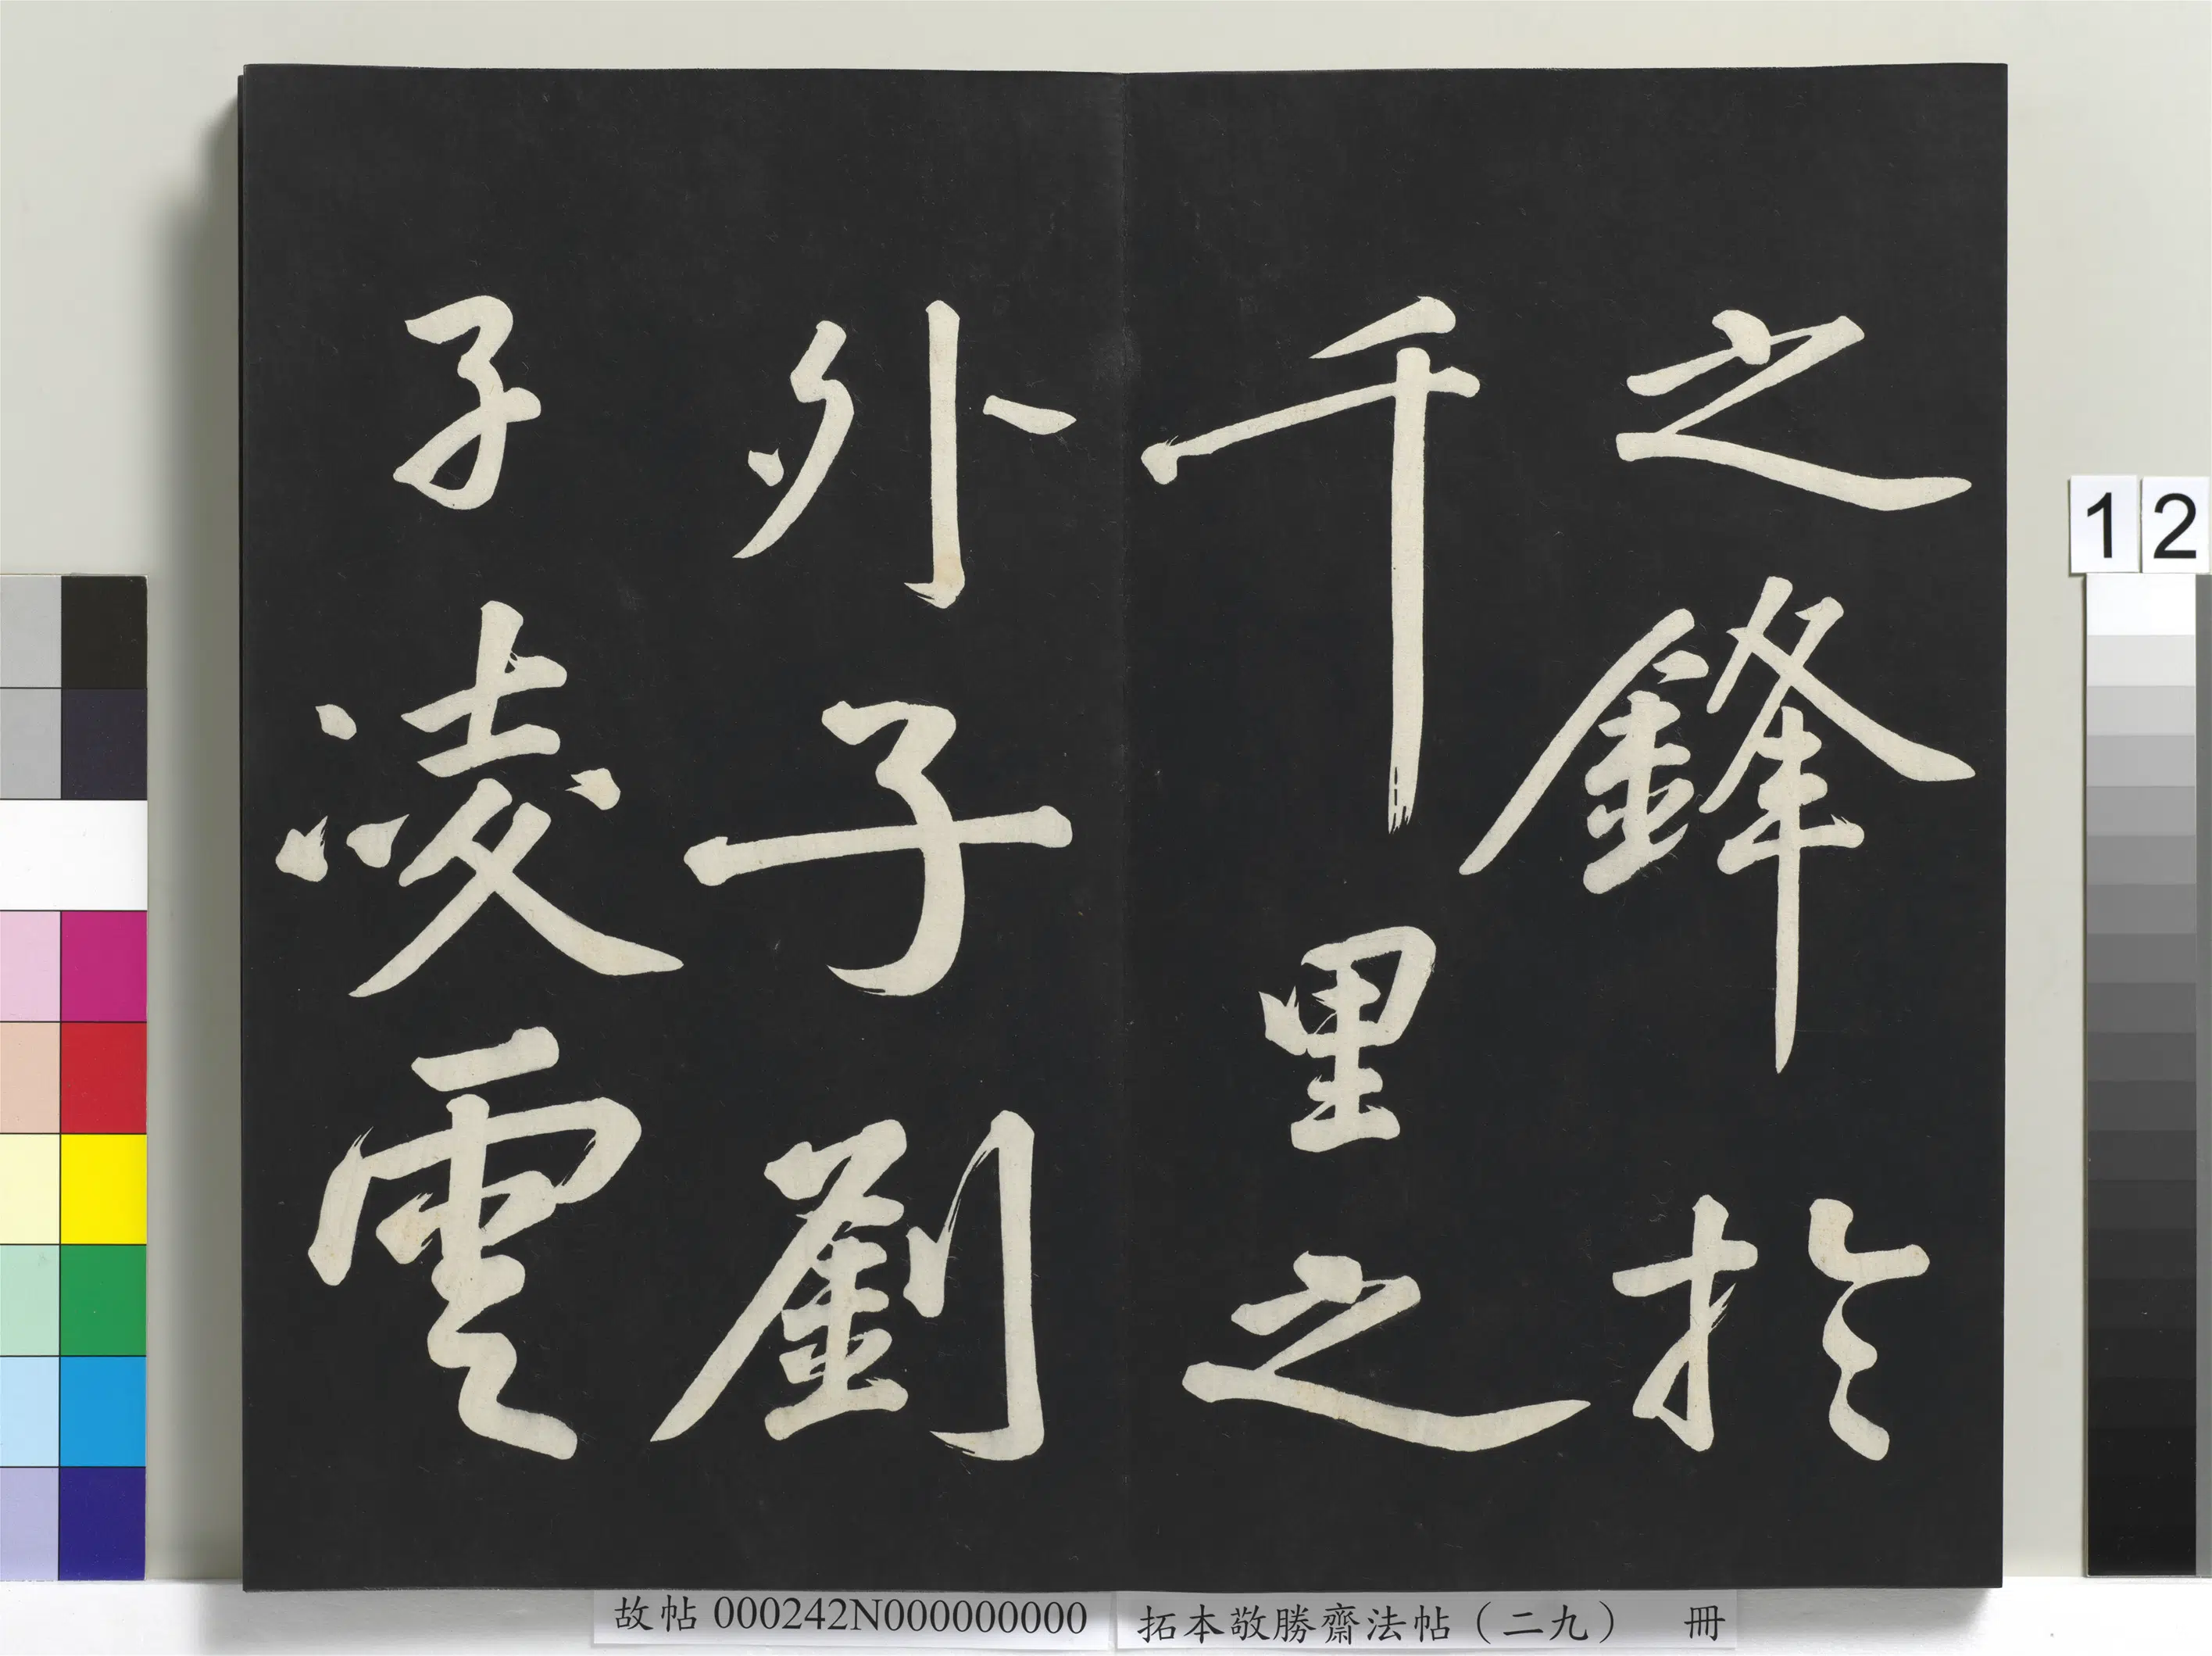 之鋒於
千里之
外子劉
子凌雲
12
故帖 000242N000000000
拓本敬勝齋法帖（二九） 冊